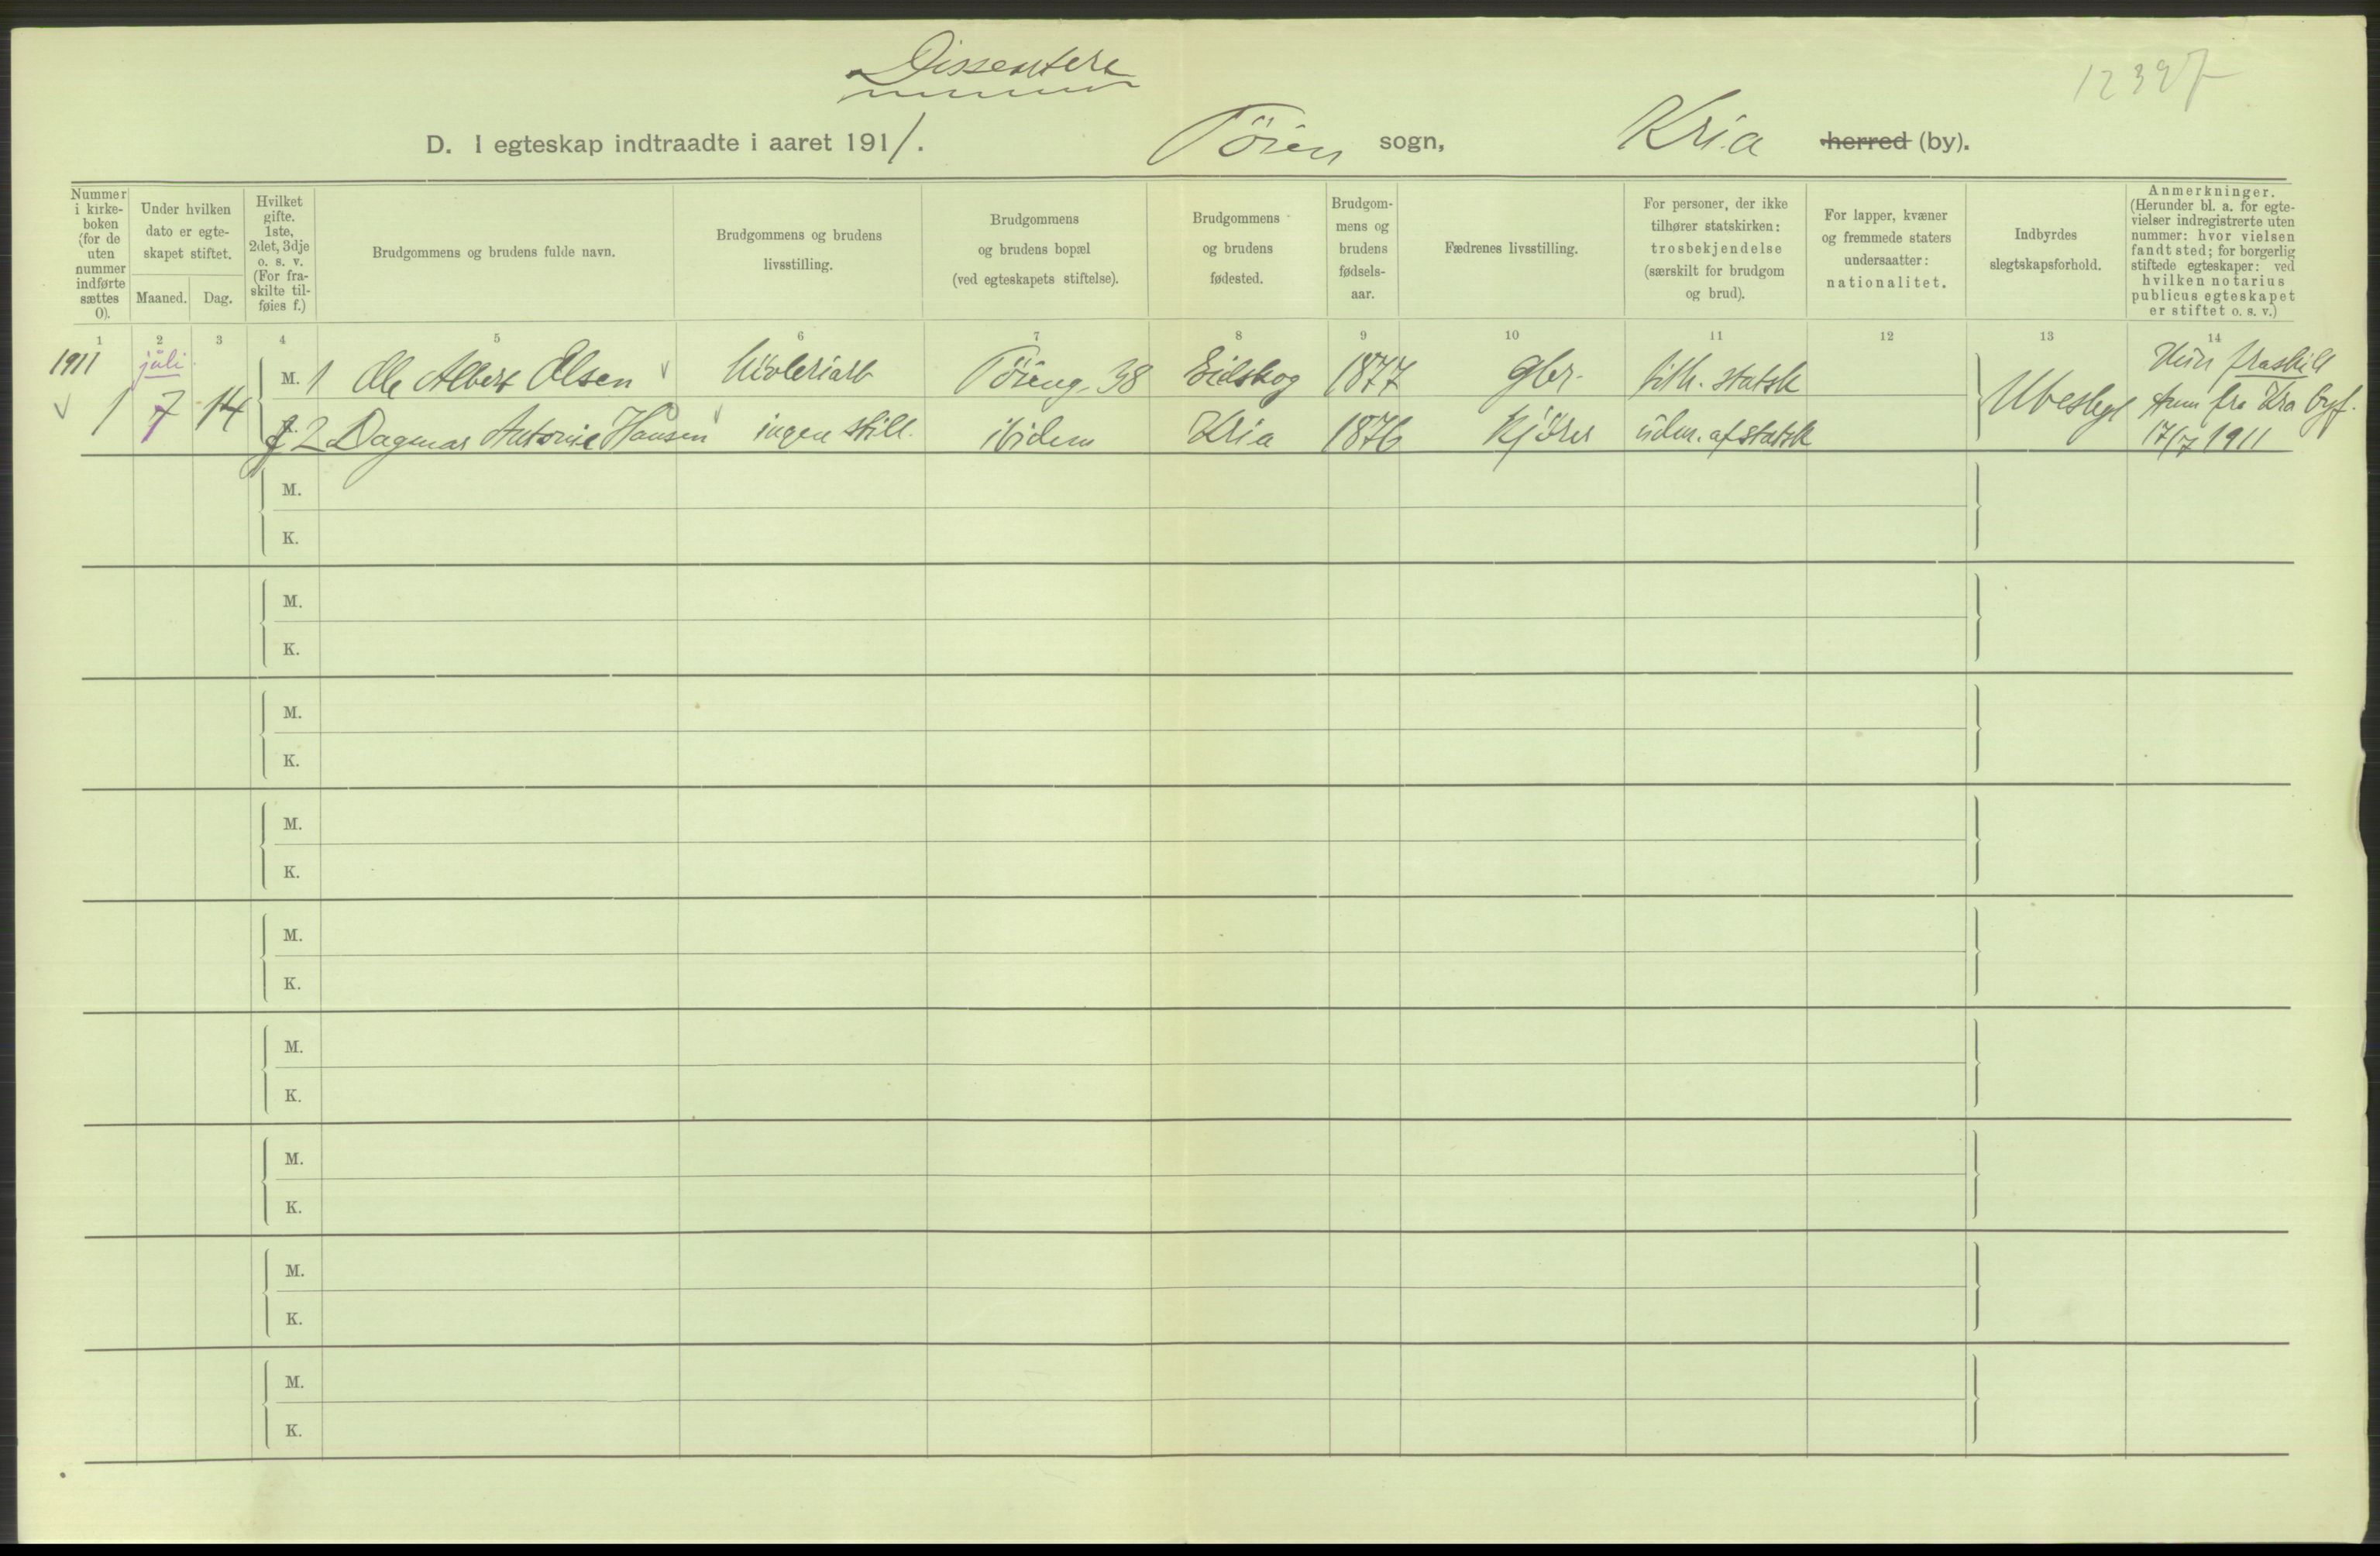 Dissentere
12397
D. I egteskap indtraadte i aaret 1911. Töien sogn, Kria herred (by).
Nummer i kirkeboken (for de uten nummer indførte sættes 0).
Under hvilken dato er egteskapet stiftet.
Maaned. Dag.
Hvilket gifte. 1ste, 2det, 3dje o. s. v. (For fraskilte tilføies f.)
Brudgommens og brudens fulde navn.
Brudgommens og brudens livsstilling.
Brudgommens og brudens bopæl (ved egteskapets stiftelse).
Brudgommens og brudens fødested.
Brudgommens og brudens fødselsaar.
Fædrenes livsstilling.
For personer, der ikke tilhører statskirken: trosbekjendelse (særskilt for brudgom og brud).
For lapper, kvæner og fremmede staters undersaatter: nationalitet.
Indbyrdes slegtskapsforhold.
Anmerkninger. (Herunder bl. a. for egtevielser indregistrerte uten nummer: hvor vielsen fandt sted; for borgerlig stiftede egteskaper: ved hvilken notarius publicus egteskapet er stiftet o. s. v.)
1 2 3 4 5 6 7 8 9 10 11 12 13 14
1911 juli
M. 1 Ole Albert Olsen Töieng. 38 Eidskog 1877 gbr. tilh. statsk
1 7 14
f. 2 Dagmar Antonie Hansen ingen still. ibidem Kria 1876 Kjörer udm. af statsk
Ubeslegt
fraskilt
fra Kra byf.
17/7 1911
M.
K.
M.
K.
M.
K.
M.
K.
M.
K.
M.
K.
M.
K.
M.
K.
M.
K.